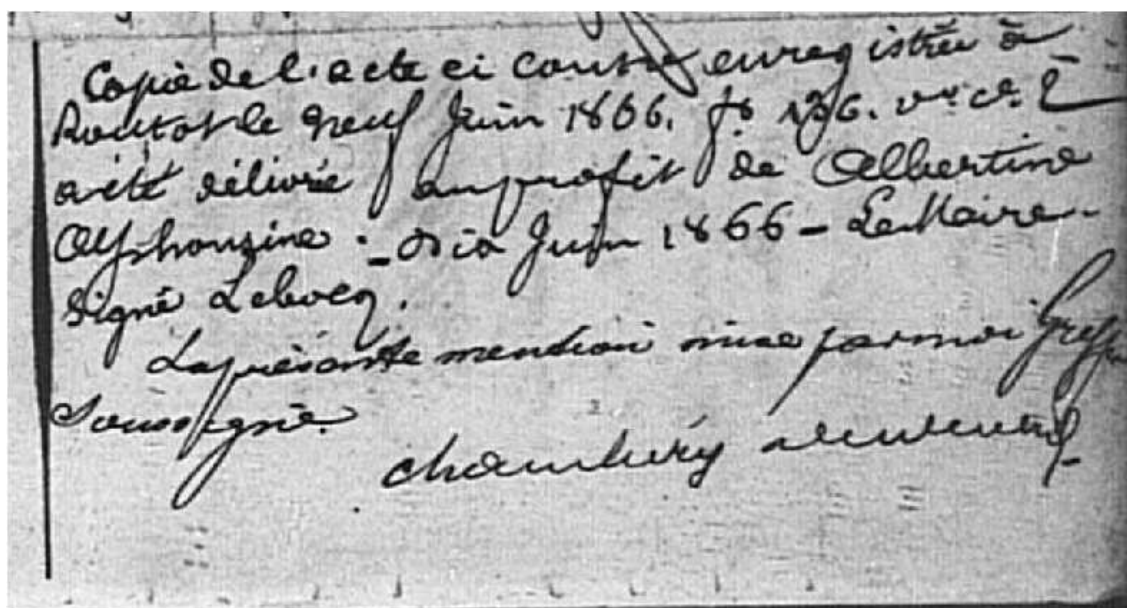 Copie de l'acte ci contre enregistrée à
Routot le neuf Juin 1866. fo 136. vo ce. 2
a été délivrée au profit de Albertine
Alphonsine :- Dix Juin 1866 - Le Maire -
Signé Lebocq.
La présente mention mise par moi Greffier
Soussigné.